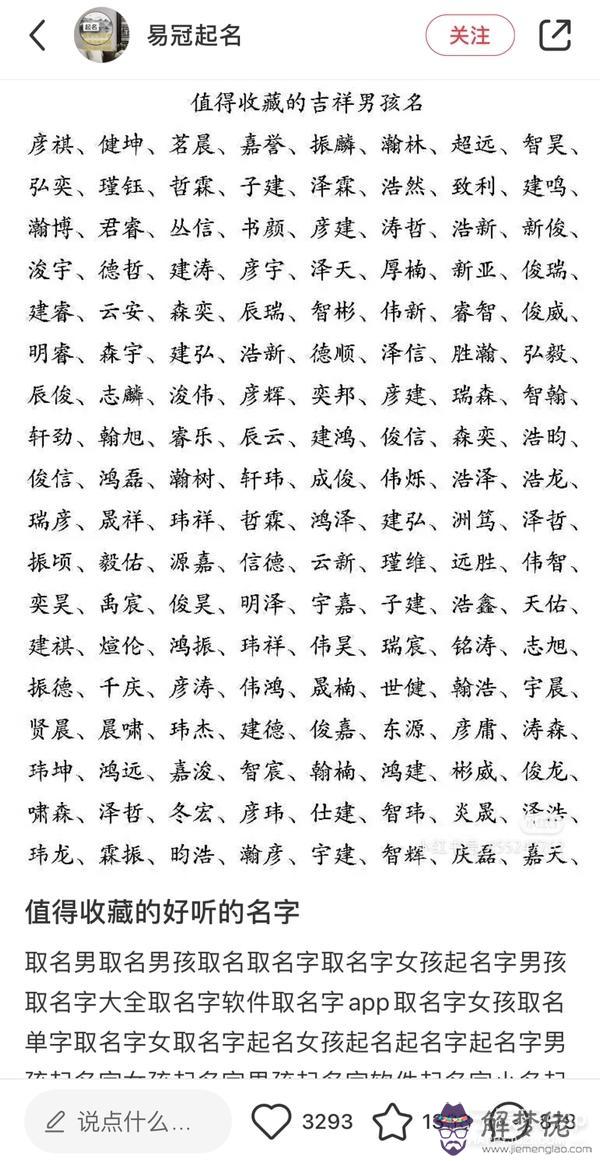 起名
易冠起名
关注
值得收藏的吉祥男孩名
彦祺、健坤、茗晨、嘉誉、振麟、瀚林、超远、智昊、
弘奕、瑾钰、哲霖、子建、泽霖、浩然、致利、建鸣、
瀚博、君睿、丛信、书颜、彦建、涛哲、浩新、新俊、
浚宇、德哲、建涛、彦宇、泽天、厚楠、新亚、俊瑞、
建睿、云安、森奕、辰瑞、智彬、伟新、睿智、俊威、
明睿、森宇、建弘、浩新、德顺、泽信、胜瀚、弘毅、
辰俊、志麟、浚伟、彦辉、奕邦、彦建、瑞森、智翰、
轩劲、翰旭、睿乐、辰云、建鸿、俊信、森奕、浩昀、
俊信、鸿磊、瀚树、轩玮、成俊、伟烁、浩泽、浩龙、
瑞彦、晟祥、玮祥、哲霖、鸿泽、建弘、洲笃、泽哲、
振顷、毅佑、源嘉、信德、云新、瑾维、远胜、伟智、
奕昊、禹宸、俊昊、明泽、宇嘉、子建、浩鑫、天佑、
建祺、煊伦、鸿振、玮祥、伟昊、瑞宸、铭涛、志旭、
振德、千庆、彦涛、伟鸿、晟楠、世健、翰浩、宇晨、
贤晨、晨啸、玮杰、建德、俊嘉、东源、彦庸、涛森、
玮坤、鸿远、嘉浚、智宸、翰楠、鸿建、彬威、俊龙、
啸森、泽哲、冬宏、彦玮、仕建、智玮、炎晟、泽浩、
玮龙、霖振、昀浩、瀚彦、宇建、智辉、庆磊、嘉天、
值得收藏的好听的名字
取名男取名男孩取名取名字取名字女孩起名字男孩
取名字大全取名字软件取名字app取名字女孩取名
单字取名字女取名字起名女孩起名起名字起名字男
孩起名字女孩起名字男孩起名字软件起名字小名起
说点什么...
3293
解梦佬
www.jiemenglao.com